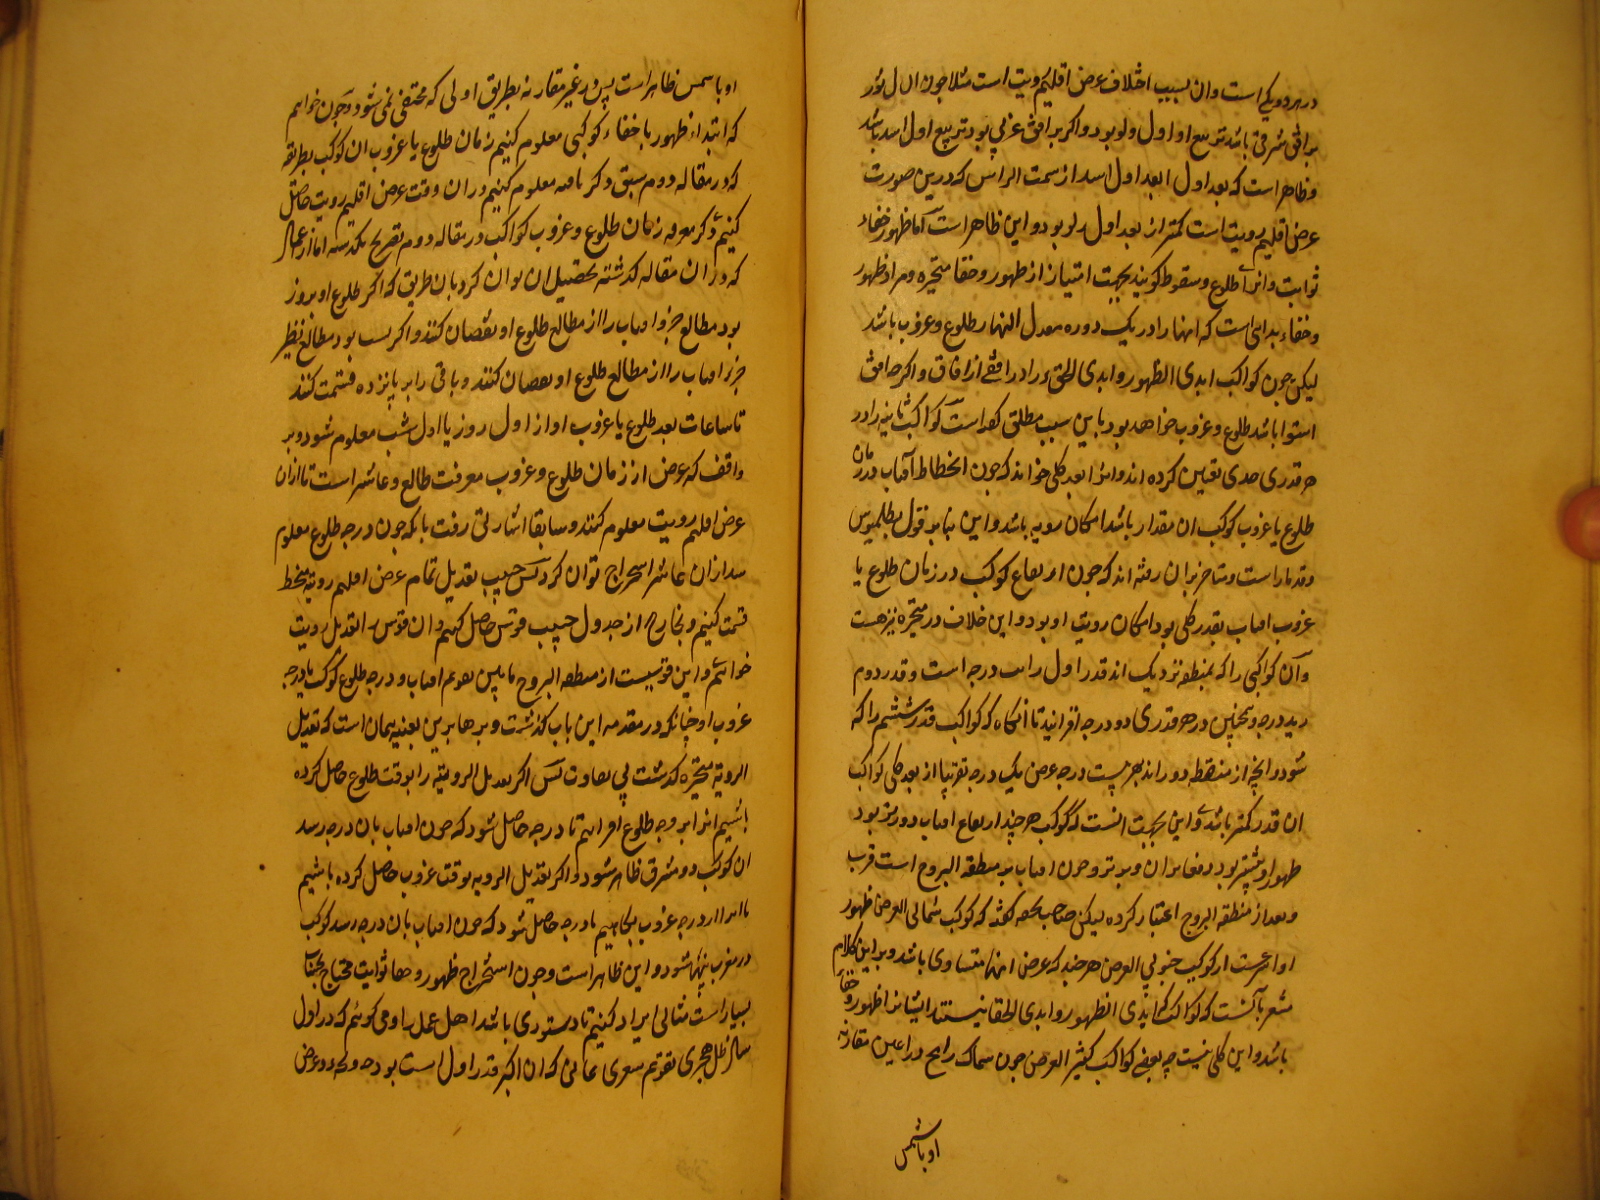 در هر دو یکی است و ان بسبب اختلاف عرض اقلیم رویت است مثلا چون اول ثور
بر افق شرقی باشد تربیع او اول دلو بود و اکر بر افق غربی بود تربیع اول اسد باشد
و ظاهر است که بعد اول اسد از سمت الراس که درین صورت
عرض اقلیم رویت است کمتر از بعد اول دلو بود و این ظاهر است اما ظهور و خفاء
ثوابت و انرا طلوع و سقوط کویند بجهت امتیاز از ظهور و خفا متحیره و مراد ظهور
و خفاء است که انها را در یک دوره معدل النهار طلوع و غروب باشد
لیکن چون کواکب ابدی الظهور و ابدی الخفاء را در افقی از افاق و اکرچه افق
استوا باشد طلوع و غروب خواهد بود باین سبب مطلق است کواکب ثابته را در
هر قدری حدی تعیین کرده اند و انرا بعد کلی خوانند که چون انحطاط آفتاب در زمان
طلوع یا غروب کوکب ان مقدار باشد امکان رویه باشد و این بنابر قول بطلمیوس
و قدما است و متاخران بران رفته اند که چون ارتفاع کوکب در زمان طلوع یا
غروب افتاب بقدر کلی بود امکان رویت او بود و این خلاف در متحیره نیز هست
و ان کواکبی را که بمنطقه نزدیک اند قدر اول را درجه است و قدر دوم
درجه و همچنین در هر قدری دو درجه افزایند تا آنکاه که کواکب قدر ششم را که
شود و انچه از منطقه دور اند بهر بیست درجه عرض یک درجه تقریبا از بعد کلی کواکب
ان قدر کمتر باشد و این بجهت انست که کوکب هر چند از شعاع افتاب دورتر بود
ظهور او بیشتر بود و چون افتاب بر منطقه البروج است قرب
و بعد از منطقه البروج اعتبار کرده لیکن صاحب تحفه کفته که کوکب شمالی العرض ظهور
او از کوکب جنوبی العرض هر چند که عرض انها متساوی باشد و بر این کلام
مشعر بآنست که کواکب که ابدی الظهور و ابدی الخفا نیستند ایشانرا ظهور و خفاء
باشد و این کلی نیست چه بعضی کواکب کثیر العرض چون سماک رامح در عین مقارنه
او با شمس
او با شمس ظاهر است پس در غیر مقارنه بطریق اولی که مختفی نمی شود و چون خواهیم
که ابتداء ظهور یا خفاء کوکبی معلوم کنیم زمان طلوع یا غروب ان کوکب بطریقه
که در مقاله دوم سبق ذکر یافته معلوم کنیم و در ان وقت عرض اقلیم رویت حاصل
کنیم و ذکر معرفه زمان طلوع و غروب کواکب در مقاله دوم تصریح نکرده اما از اعمال
که در ان مقاله کذشته تحصیل ان توان کرد بان طریق که اکر طلوع او بروز
بود مطالع جزو افتاب را از مطالع طلوع او نقصان کنند و اکر بشب بود مطالع نظیر
جزو افتاب را از مطالع طلوع او نقصان کنند و باقی را بر پانزده قسمت کنند
تا ساعات بعد طلوع یا غروب او از اول روز یا اول شب معلوم شود و بر
واقف که غرض از زمان طلوع و غروب معرفت طالع و عاشر است تا ازان
عرض اقلیم رویت معلوم کنند و سابقا اشارتی رفت بانکه چون درجه طلوع معلوم
شد ازان عاشر استخراج توان کرد پس جیب تعدیل تمام عرض اقلیم رویه منحط
قسمت کنیم و خارج از جدول جیب قوس حاصل کنیم و ان قوس را تعدیل رویت
خوانیم و این قوسیست از منطقه البروج مابین تقویم افتاب و درجه طلوع کوکب یا درجه
غروب او چنانکه در مقدمه این باب کذشت و برهان برین بعینه همان است که تعدیل
الرویه متحیره کذشت بی تفاوت پس اکر تعدیل الرویه را بوقت طلوع حاصل کرده
باشیم انرا بر درجه طلوع افزاییم تا درجه حاصل شود که چون افتاب بان درجه رسد
ان کوکب در مشرق ظاهر شود و اکر تعدیل الرویه بوقت غروب حاصل کرده باشیم
انرا از درجه غروب بکاهیم تا درجه حاصل شود که چون افتاب بان درجه رسد کوکب
در مغرب پنهان شود و این ظاهر است و چون استخراج ظهور و خفا ثوابت محتاج بحساب
بسیار است مثالی ایراد کنیم تا دستوری باشد اهل عمل را و می کوئیم که در اول
سال هجری تقویم شعری یمانی که ان اکبر قدر اول است بود و عرض